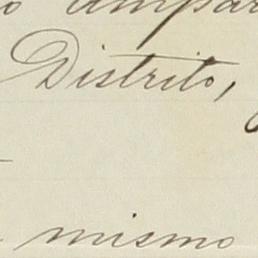 o ampar
Distrito,
mismo